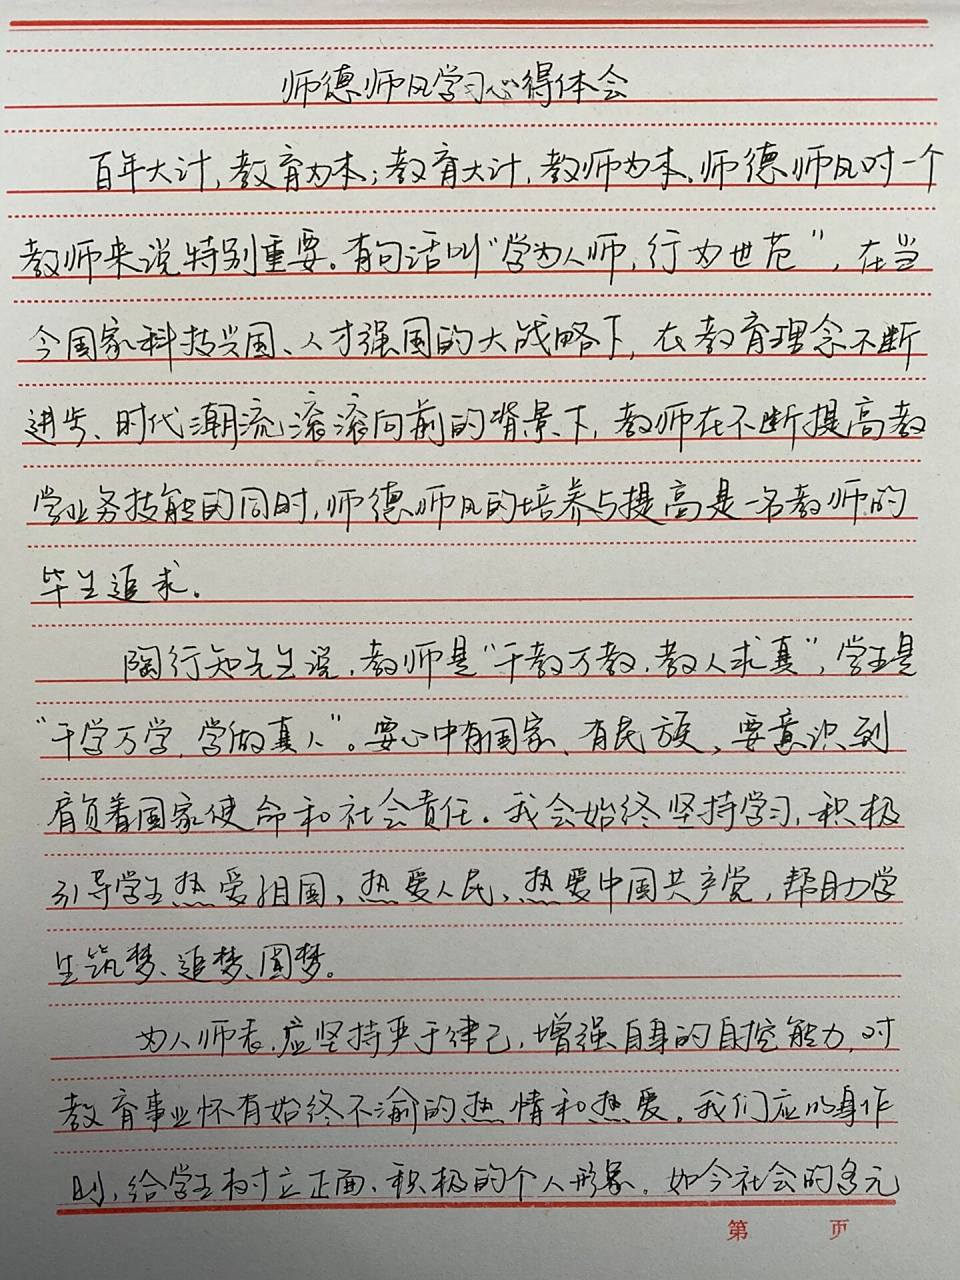 师德师风学习心得体会
百年大计，教育为本；教育大计，教师为本。师德师风对一个
教师来说特别重要。有句话叫“学为人师，行为世范”，在当
今国家科技兴国、人才强国的大战略下，在教育理念不断
进步、时代潮流滚滚向前的背景下，教师在不断提高教
学业务技能的同时，师德师风的培养与提高是一名教师的
毕生追求。
陶行知先生说，教师是“千教万教，教人求真”，学生是
“千学万学，学做真人”。要心中有国家、有民族，要意识到
肩负着国家使命和社会责任。我会始终坚持学习，积极
引导学生热爱祖国，热爱人民，热爱中国共产党，帮助学
生筑梦、追梦、圆梦。
为人师表，应坚持严于律己，增强自身的自控能力，对
教育事业怀有始终不渝的热情和热爱。我们应以身作
则，给学生树立正面、积极的个人形象。如今社会的多元
第 页